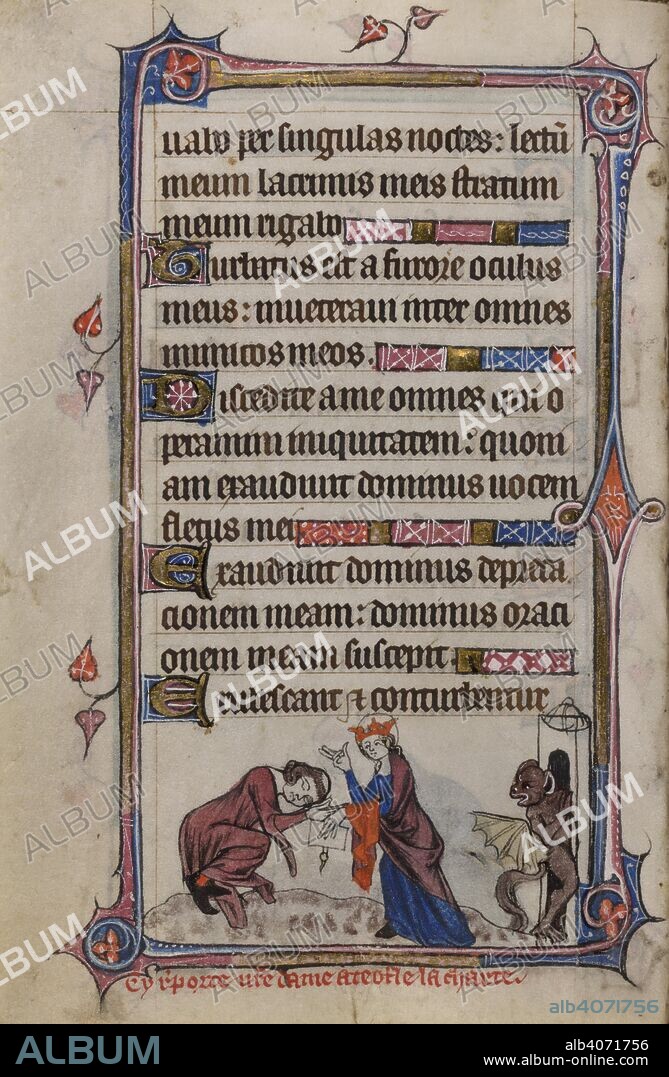 uabo per singulas noctes: lectū
meum lacrimis meis stratum
meum rigabo
Turbatus est a furore oculus
meus: inueteraui inter omnes
inimicos meos.
Discedite a me omnes qui o
peramini iniquitatem: quoni
am exaudiuit dominus uocem
fletus mei
Exaudiuit dominus depreca
cionem meam: dominus oraci
onem meam suscepit.
Erubescant & conturbentur
Cy r̄porte n̄re dame a teofle la chartre.
ALBUM
alb4071756
ALBUM
alb4071756
www.album-online.com